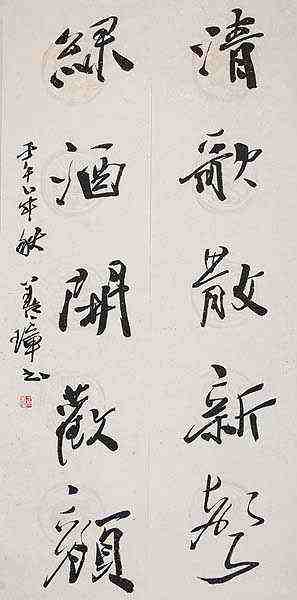 清歌散新聲
綠酒開歡顏
壬午年秋 璋书